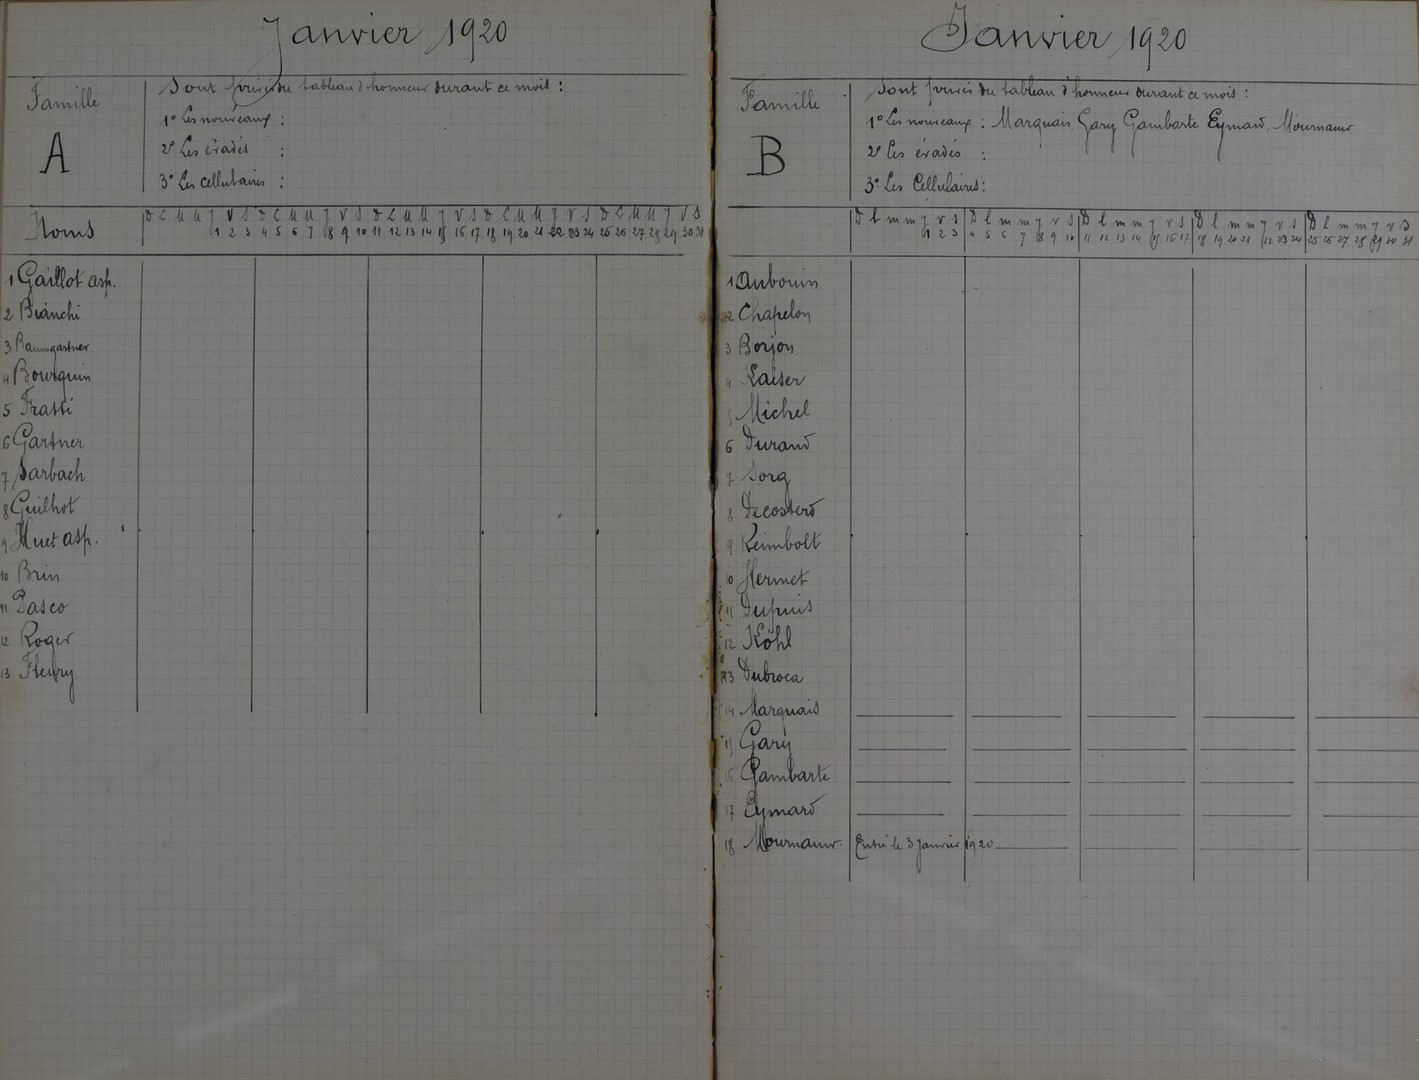 Janvier 1920
Famille
A
Sont privés du tableau d'honneur durant ce mois :
1° Les nouveaux :
2° Les évadés :
3° Les cellulaires :
Noms
D L M M J V S D L M M J V S D L M M J V S D L M M J V S D L M M J V S
1 2 3 4 5 6 7 8 9 10 11 12 13 14 15 16 17 18 19 20 21 22 23 24 25 26 27 28 29 30 31
1 Gaillot asp.
2 Bianchi
3 Baumgartner
4 Bourquin
5 Fratti
6 Gartner
7 Sarbach
8 Guilhot
9 Huet asp.
10 Brin
11 Pasco
12 Roger
13 Fleury
Janvier 1920
Famille
B
Sont privés du tableau d'honneur durant ce mois :
1° Les nouveaux : Marquais Gary Gambarte Eymard Mournaur
2° Les évadés :
3° Les Cellulaires :
D l m m j v s D l m m j v s D l m m j v s D l m m j v s D l m m j v s
1 2 3 4 5 6 7 8 9 10 11 12 13 14 15 16 17 18 19 20 21 22 23 24 25 26 27 28 29 30 31
1 Aubouin
2 Chapelon
3 Borjon
4 Kaiser
5 Michel
6 Durand
7 Sorg
8 Decosterd
9 Reimbolt
10 Hermet
11 Dupuis
12 Köhl
13 Dubroca
14 Marquais
15 Gary
16 Gambarte
17 Eymard
18 Mournaur Entré le 3 Janvier 1920